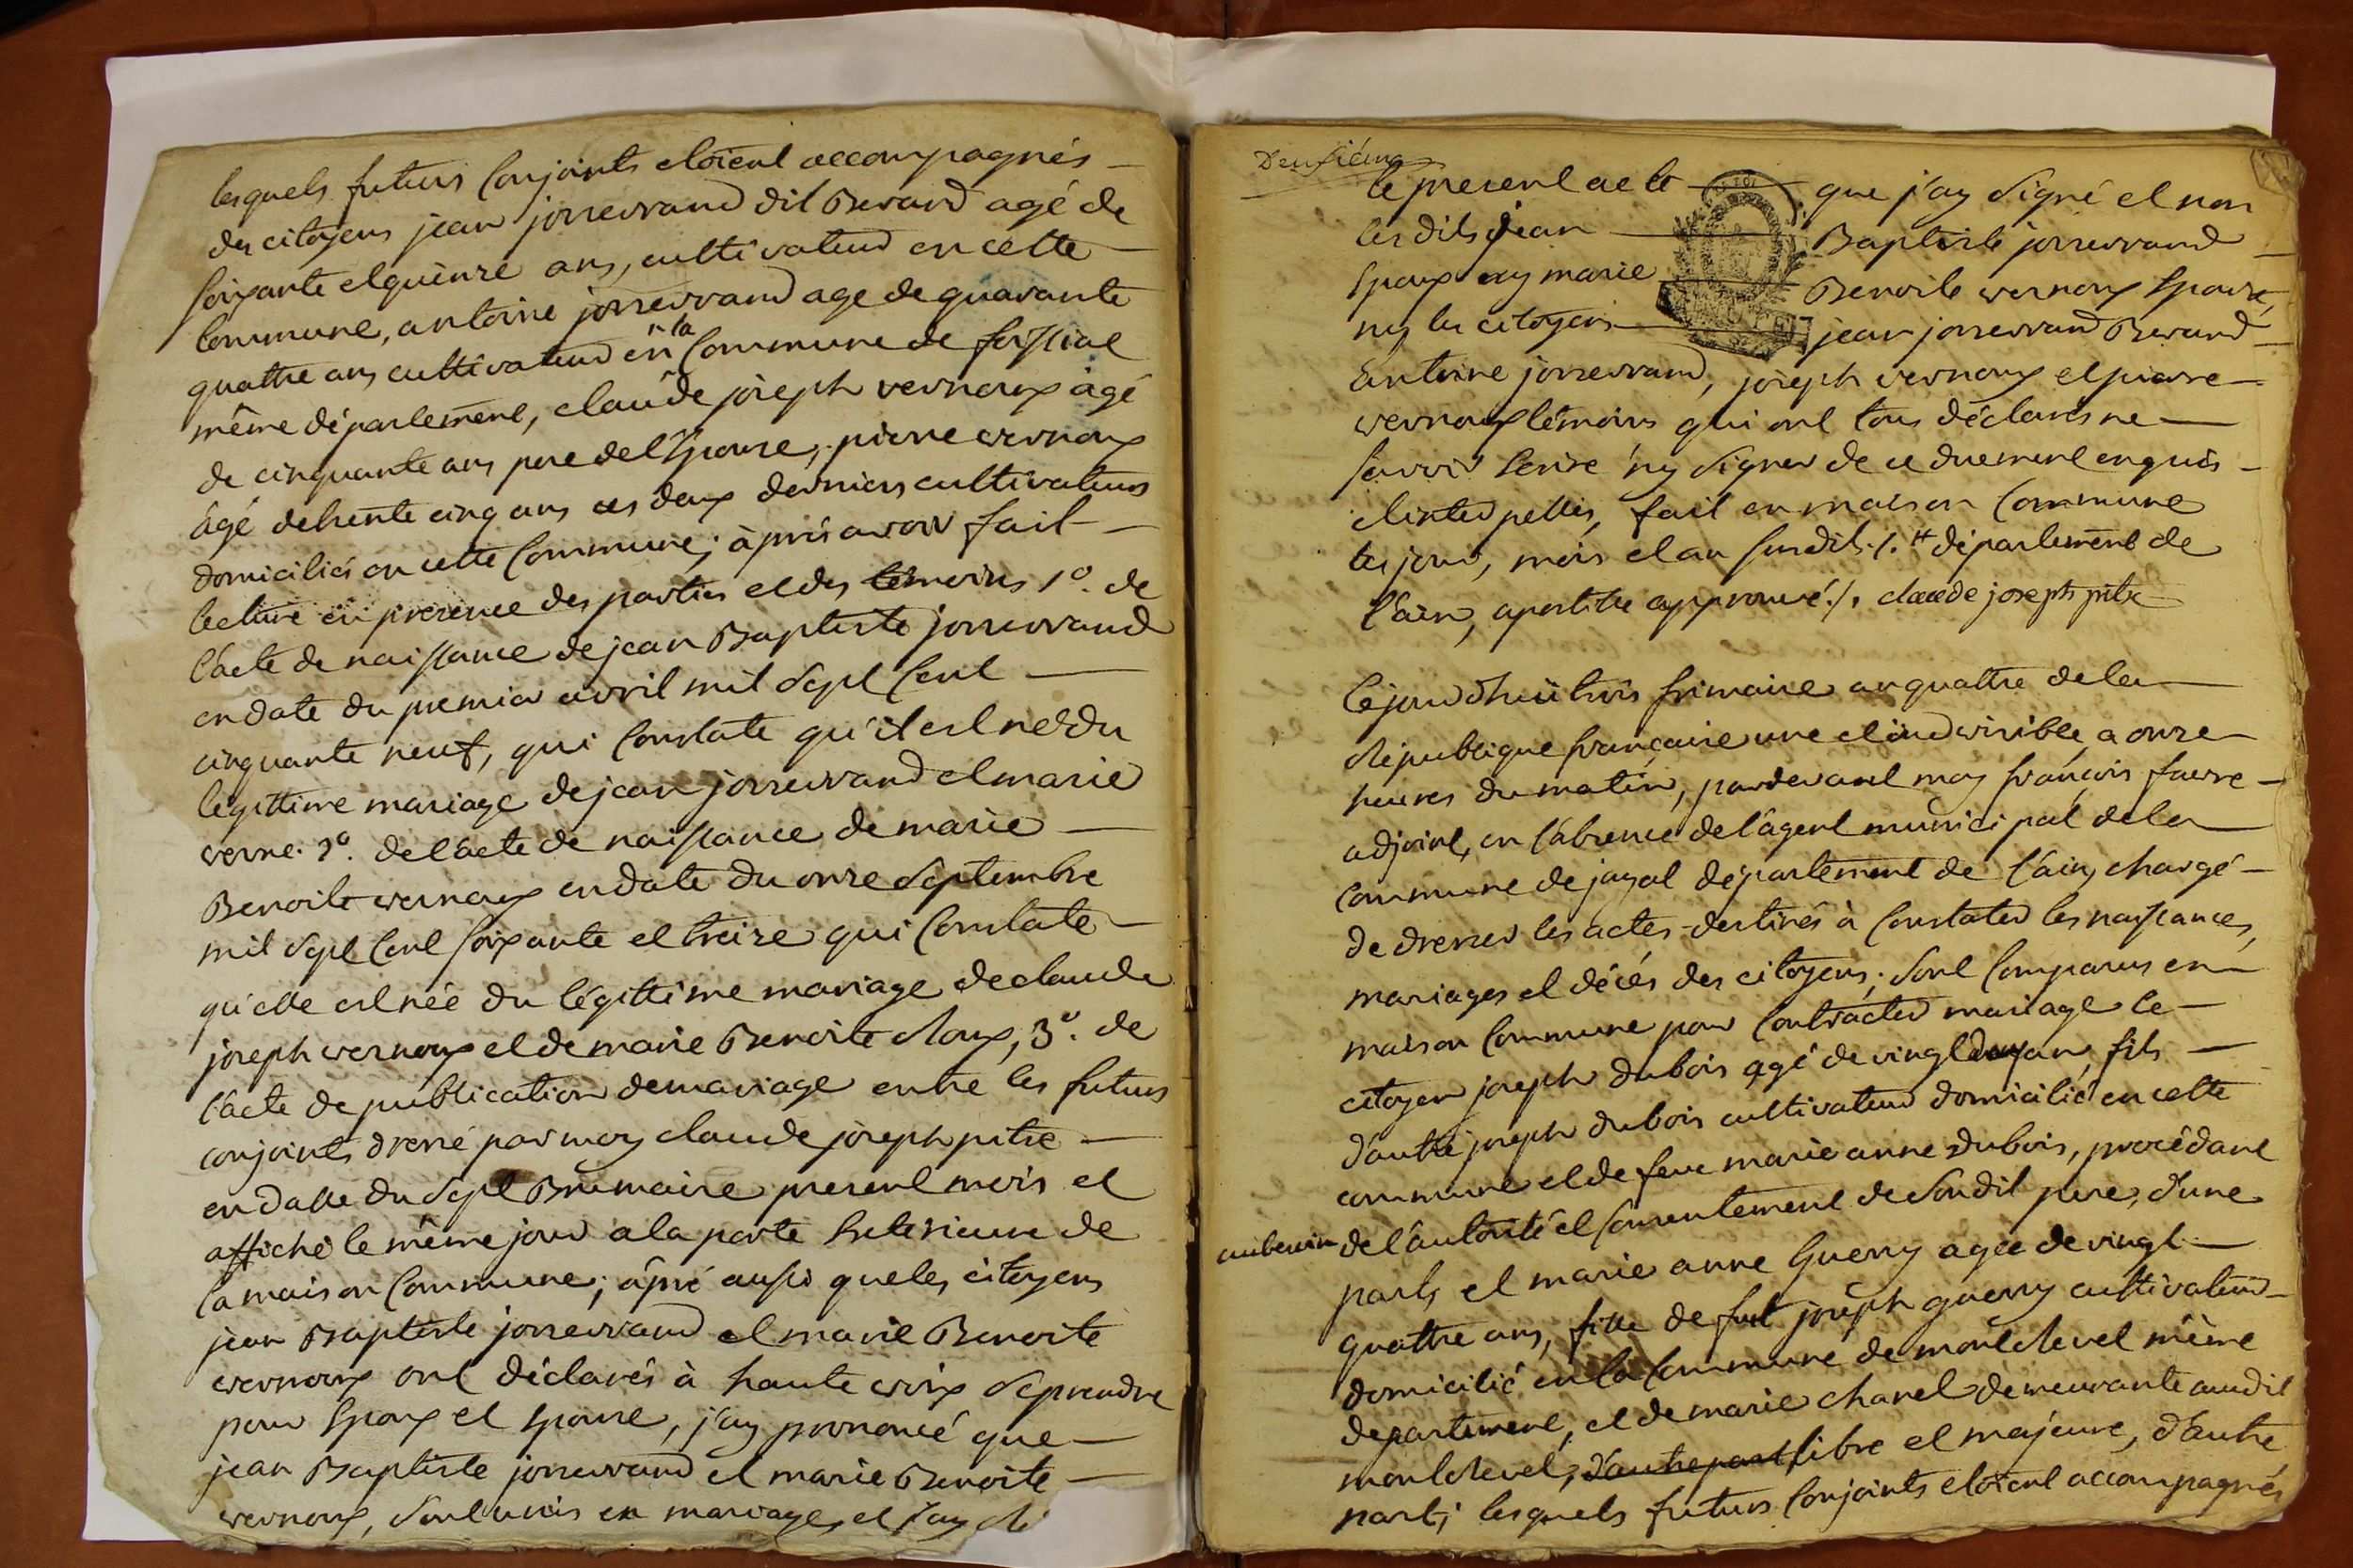 lesquels futurs Conjoints etoient accompagnés
des citoyens jean josserrand dit Berard agé de
soixante et quinze ans, cultivateur en cette
Commune, antoine josserrand age de quarante
quattre ans cultivateur en la Commune de foissiat
même département, claude joseph vernoux àgé
de cinquante ans pere de l'Epouse, pierre vernoux
âgé de trente cinq ans ces deux derniers cultivateurs
domiciliés en cette Commune; àprès avoir fait
lecture en presence des parties et des témoins 1º. de
l'acte de naissance de jean Baptiste josserrand
en date du premier avril mil sept Cent
cinquante neuf, qui Constate qu'il est né du
légittime mariage de jean josserrand et marie
verne. 2º. de l'acte de naissance de marie
Benoite vernoux en date du onze Septembre
mil sept Cent soixante et treize qui Constate
qu'elle est née du légittime mariage de claude
joseph vernoux et de marie Benoite Roux, 3º. de
l'acte de publication de mariage entre les futurs
conjoints dressé par moy claude joseph pitre
en datte du sept Brumaire present mois et
affiché le même jour a la porte Exterieure de
la maison Commune; âpré aussi que les citoyens
jean Baptiste josserrand et marie Benoite
vernoux ont déclarés à haute voix se prendre
pour Epoux et Epouse, j'ay prononcé que
jean Baptiste josserrand et marie Benoite
vernoux, sont unis en mariage, et j'ay
Deuxième
le present acte que j'ay signé et non
les dits jean Baptiste josserrand
Epoux ny marie Benoite vernoux Epouse,
ny les citoyens jean josserrand Berard
Antoine josserrand, joseph vernoux et pierre
vernoux témoins qui ont tous déclarés ne
savoir Ecrire ny signer de ce duement enquis
et interpellés, fait en maison Commune
les jour, mois et an susdits ./. # département de
l'ain, apostille approuvé ./. claude joseph pitre
Cejourd'huÿ trois frimaire an quattre de la
République françaire une et indivisible, a onze
heures du matin, pardevant moy françois favre
adjoint, en l'absence de l'agent municipal de la
Commune de jayat département de l'ain, chargé
de dresser les actes destinés à Constater les naissances,
mariages et décès des citoyens; sont Comparus en
maison Commune pour Contracter mariage le
citoyen joseph dubois agé de vingt deux an, fils
d'autre joseph dubois cultivateur domicilié en cette
commune et de feue marie anne dubois, procédant
de l'autorité et Consentement de sondit pere, d'une
part, et marie anne Guerry agée de vingt
quattre ans, fille de fut joseph guerry cultivateur
domicilié en la Commune de montrevel même
departement, et de marie chanel demeurante audit
montrevel, d'autre part, libre et majeure, d'autre
part; lesquels futurs Conjoints etoient accompagnés